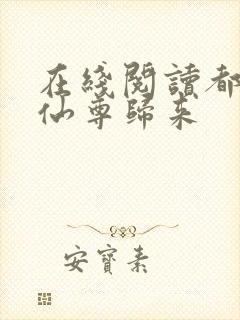 在綫閱讀都
仙尊歸来
安寶素